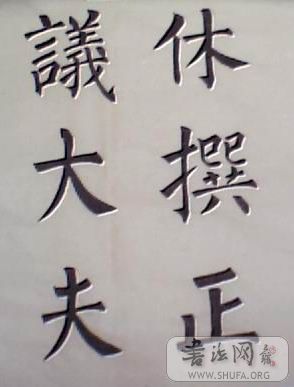 休撰正
議大夫
書法网
WWW.SHUFA.ORG